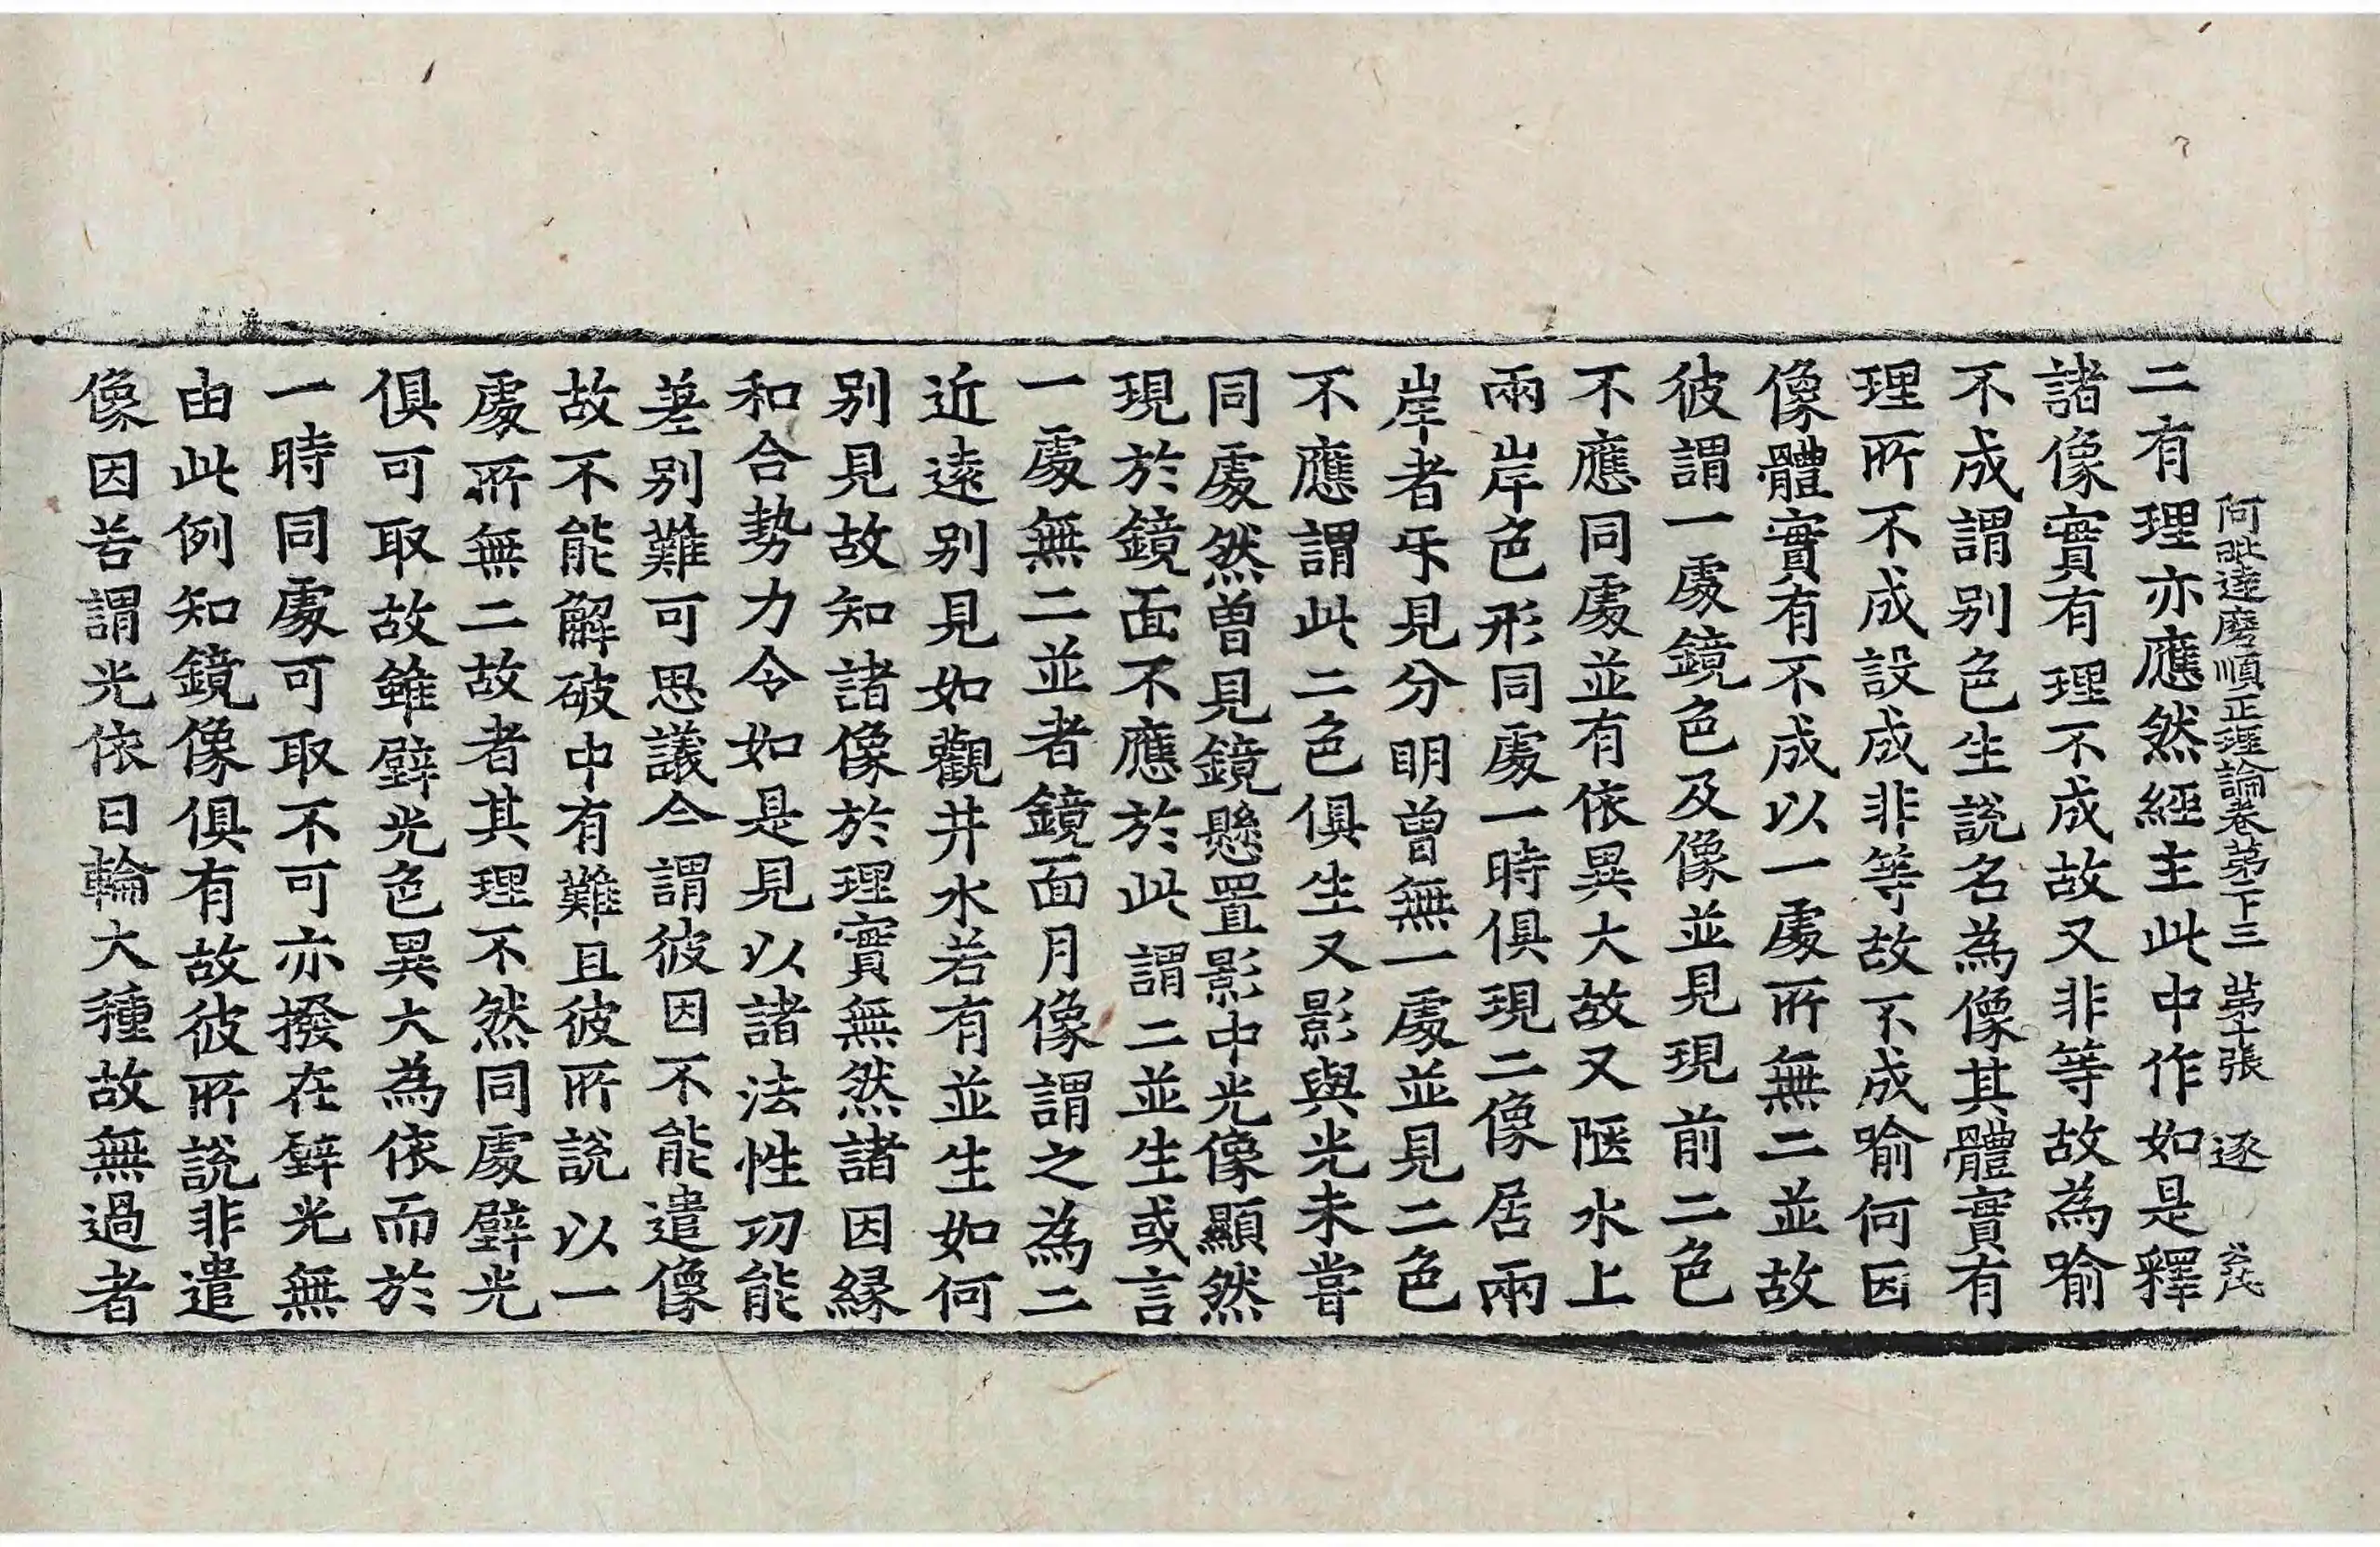 阿毗達磨順正理論卷第二十三 第十張 逐
二有理亦應然經主此中作如是釋
諸像實有理不成故又非等故為喻
不成謂別色生說名為像其體實有
理所不成設成非等故不成喻何因
像體實有不成以一處所無二並故
彼謂一處鏡色及像並見現前二色
不應同處並有依異大故又陿水上
兩岸色形同處一時俱現二像居兩
岸者㸦見分明曾無一處並見二色
不應謂此二色俱生又影與光未嘗
同處然曾見鏡懸置影中光像顯然
現於鏡面不應於此謂二並生或言
一處無二並者鏡面月像謂之為二
近遠別見如觀井水若有並生如何
別見故知諸像於理實無然諸因緣
和合勢力令如是見以諸法性功能
差別難可思議今謂彼因不能遣像
故不能解破中有難且彼所說以一
處所無二故者其理不然同處壁光
俱可取故雖壁光色異大為依而於
一時同處可取不可亦撥在壁光無
由此例知鏡像俱有故彼所說非遣
像因若謂光依日輪大種故無過者